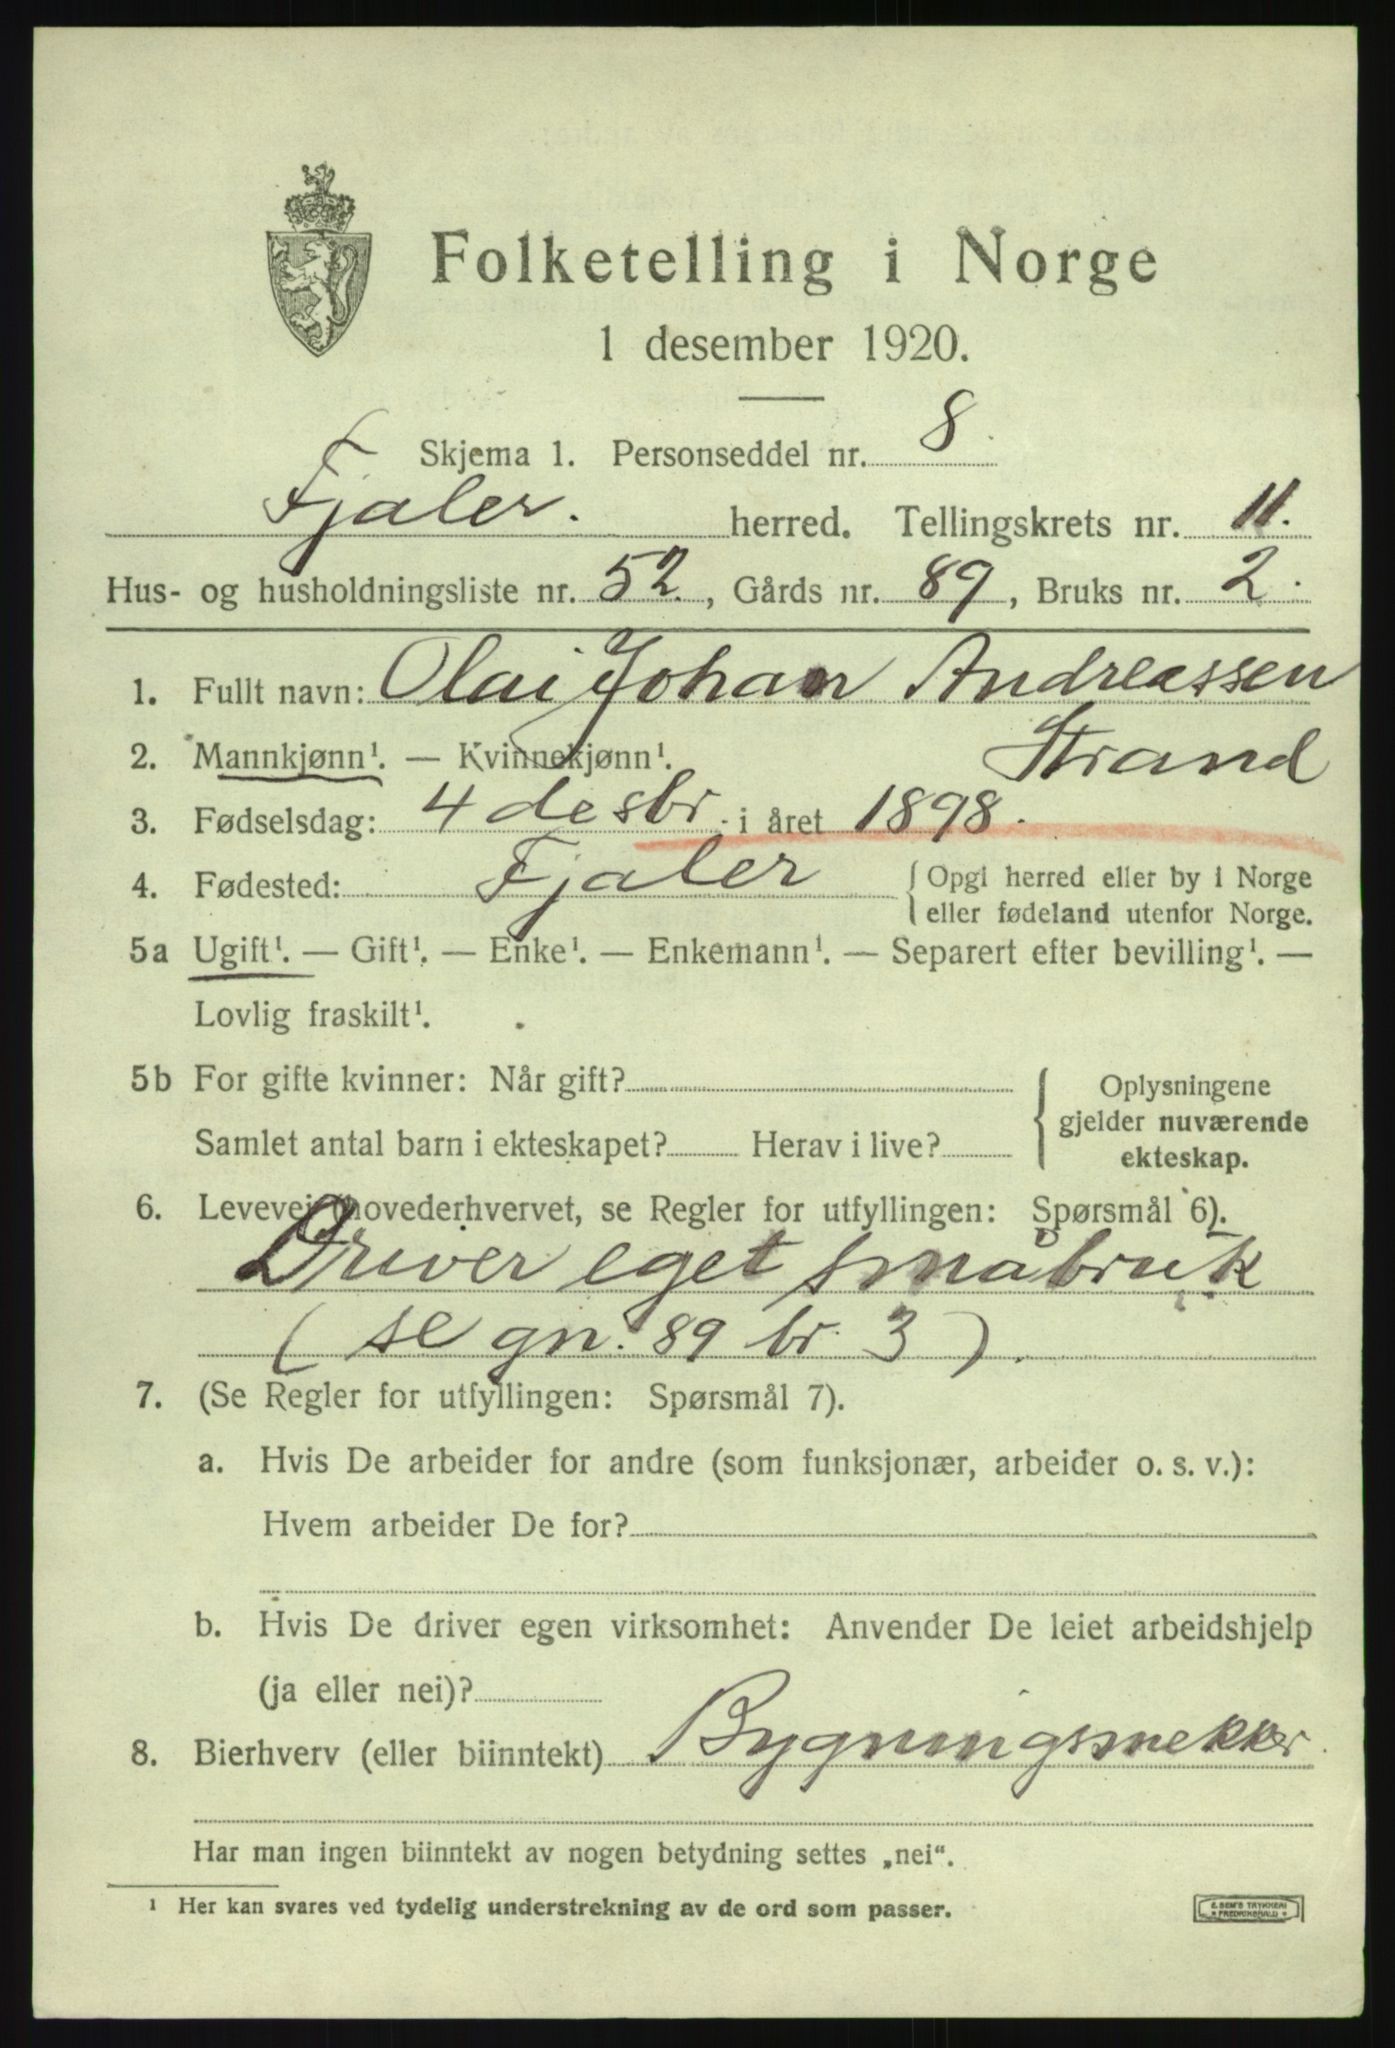 Folketelling i Norge
1 desember 1920.
Skjema 1. Personseddel nr. 8.
Fjaler. herred. Tellingskrets nr. 11.
Hus- og husholdningsliste nr. 52., Gårds nr. 89, Bruks nr. 2.
1. Fullt navn: Olai Johan Andreassen
Strand
2. Mannkjønn¹. — Kvinnekjønn¹.
3. Fødselsdag: 4 desbr. i året 1898.
4. Fødested: Fjaler {Opgi herred eller by i Norge
eller fødeland utenfor Norge.
5a Ugift¹. — Gift¹. — Enke¹. — Enkemann¹. — Separert efter bevilling¹. —
Lovlig fraskilt¹.
5b For gifte kvinner: Når gift?
Samlet antal barn i ekteskapet? Herav i live?
{Oplysningene
gjelder nuværende
ekteskap.
6. Levevei (hovederhvervet, se Regler for utfyllingen: Spørsmål 6).
Driver eget småbruk
(se gn. 89 br. 3).
7. (Se Regler for utfyllingen: Spørsmål 7).
a. Hvis De arbeider for andre (som funksjonær, arbeider o. s. v.):
Hvem arbeider De for?
b. Hvis De driver egen virksomhet: Anvender De leiet arbeidshjelp
(ja eller nei)?
8. Bierhverv (eller biinntekt) Bygningsnekker.
Har man ingen biinntekt av nogen betydning settes „nei“.
¹ Her kan svares ved tydelig understrekning av de ord som passer.
E. SEM'S TRYKKERI
FREDRIKSHALD